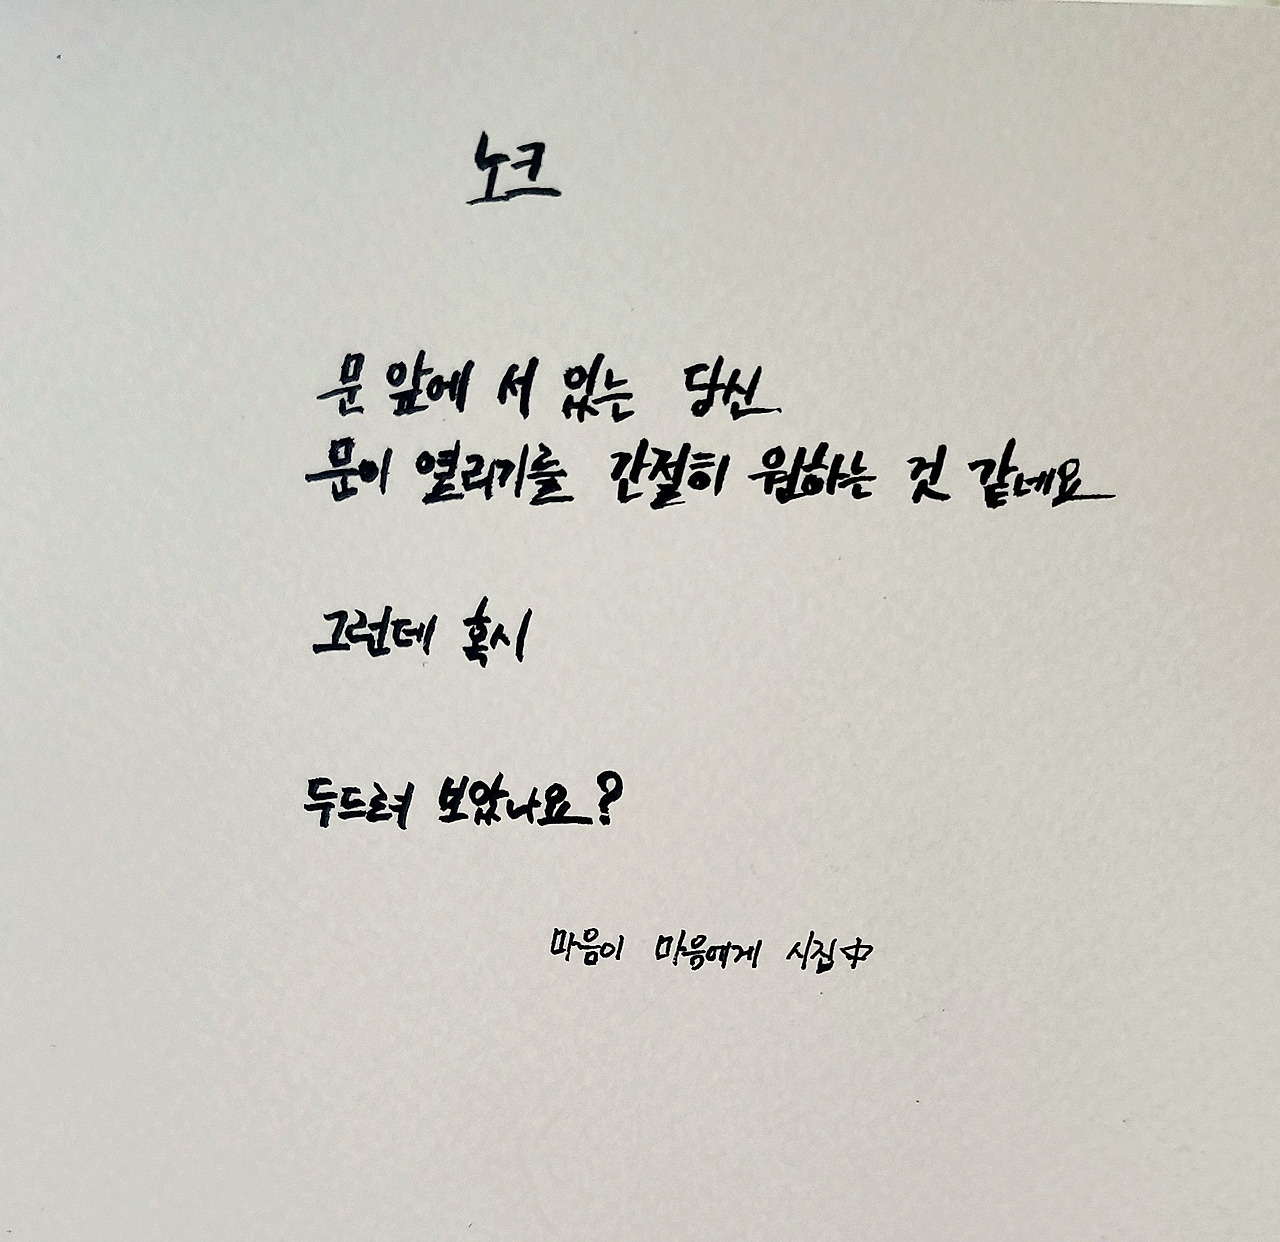 노크
문 앞에 서 있는 당신
문이 열리기를 간절히 원하는 것 같네요
그런데 혹시
두드려 보았나요?
마음이 마음에게 시집中